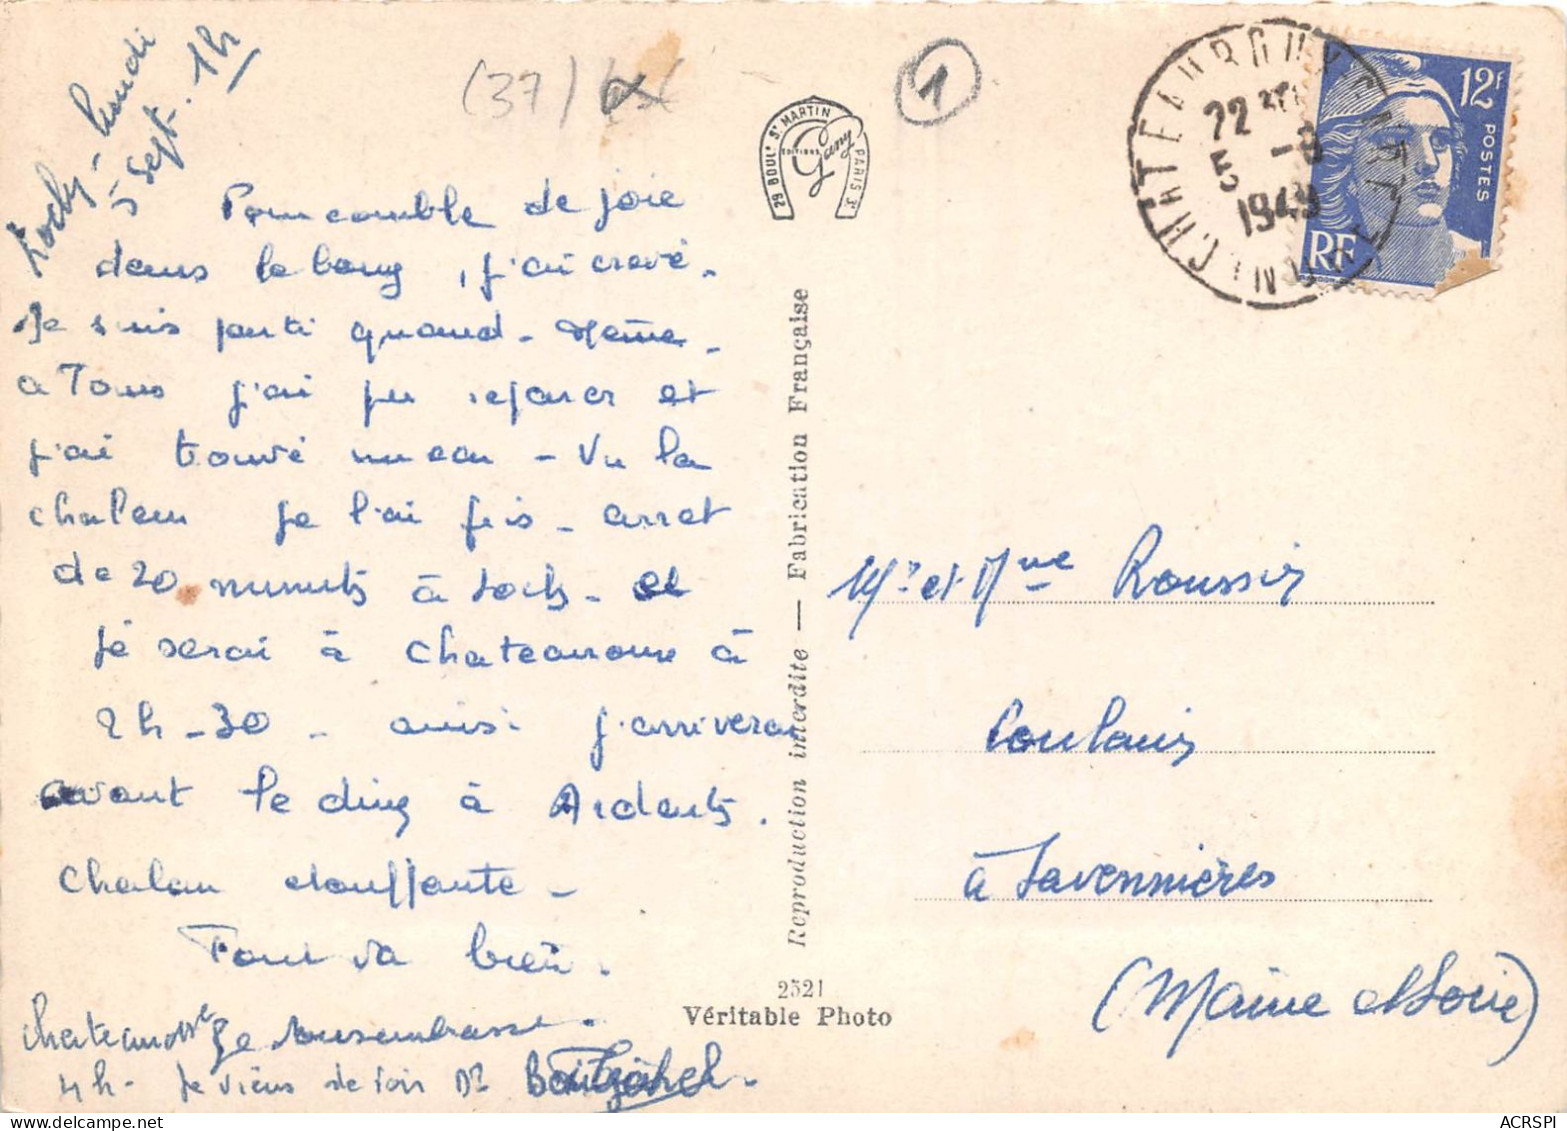 Lochy - Lundi
5 Sept. 1h
(37)
1
Pour comble de joie
dans le bourg, j'ai crevé.
Je suis parti quand-même.
a Tours j'ai pu reparer et
j'ai trouvé un car - Vu la
chaleur je l'ai pris - arret
de 20 minuts à Loch. et
je serai à Chateauroux à
2h-30 - ainsi j'arriverai
avant le diner à Ardents.
Chaleur étouffante -
Tout va bien.
Je vous embrasse.
Chateauroux
4h - Je viens de voir Dr
29 BOULd St MARTIN PARIS 3e
EDITIONS
Gaby
Reproduction interdite — Fabrication Française
2521
Véritable Photo
CHATEAUROUX GARE
22
5 -9
1949
INDRE
12F
POSTES
RF
Mr et Mme Roussin
Coulaines
à Savennières
(Maine et Loire)
delcampe.net
ACRSPI